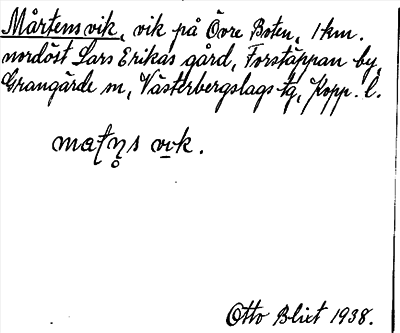 Mårtensvik, vik på Övre Boten, 1 km.
nordöst Lars Erikas gård, Forstäppan by,
Grangärde sn, Västerbergslags tg, Kopp. l.
vik.
Otto Blixt 1938.